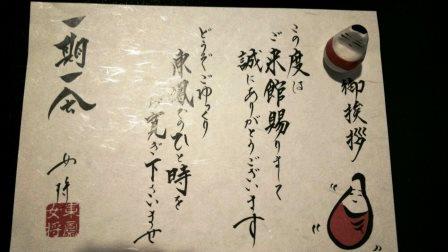 御挨拶
この度は
ご来館賜りまして
誠にありがとうございます
どうぞごゆっくり
東鳳でのひと時を
お寛ぎ下さいませ
一期一会
女将
東鳳
女将